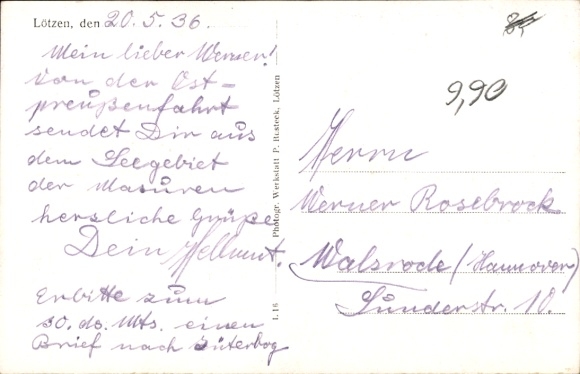 Lötzen, den 20.5.36.
Mein lieber Werner!
Von der Ost-
preußenfahrt
sendet Dir aus
dem Seegebiet
der Masuren
herzliche Grüße
Dein Hellmut.
Erbitte zum
30. ds. Mts. einen
Brief nach Jüterbog
Photogr. Werkstatt P. Rusteck, Lötzen
L 16
9,90
Herrn
Werner Rosebrock
Walsrode (Hannover)
Sünderstr. 10.